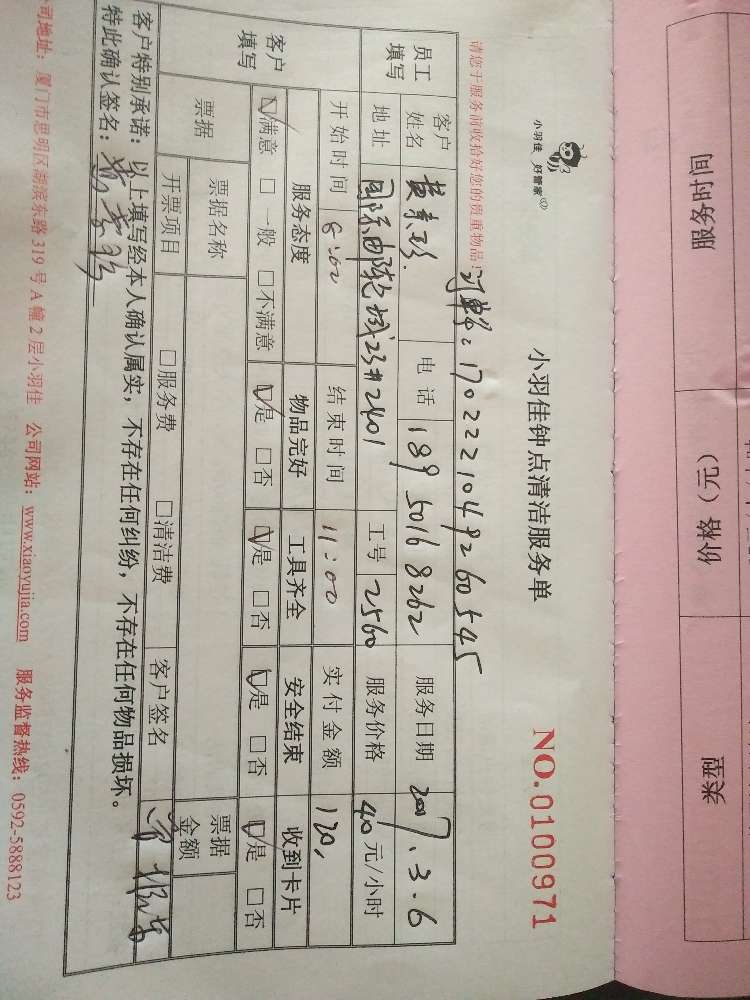 服务时间
价格（元）
类型
小羽佳 好管家
小羽佳钟点清洁服务单
NO.0100971
请您于服务前收拾好您的贵重物品!
订单号: 1702221049260545
员工填写
客户姓名
电话 189 5016 8262
服务日期 2007.3.6
地址 国际邮轮城23#2401
工号 2560
服务价格 40 元/小时
客户填写
开始时间 8:00
结束时间 11:00
实付金额 120,
服务态度
物品完好
工具齐全
安全结束
收到卡片
☑满意 □一般 □不满意
☑是 □否
☑是 □否
☑是 □否
☑是 □否
票据
票据名称
票据金额
开票项目
□服务费 □清洁费
客户签名
客户特别承诺：以上填写经本人确认属实，不存在任何纠纷，不存在任何物品损坏。
特此确认签名：
司地址：厦门市思明区湖滨东路319号A幢2层小羽佳 公司网站：www.xiaoyujia.com 服务监督热线：0592-5888123